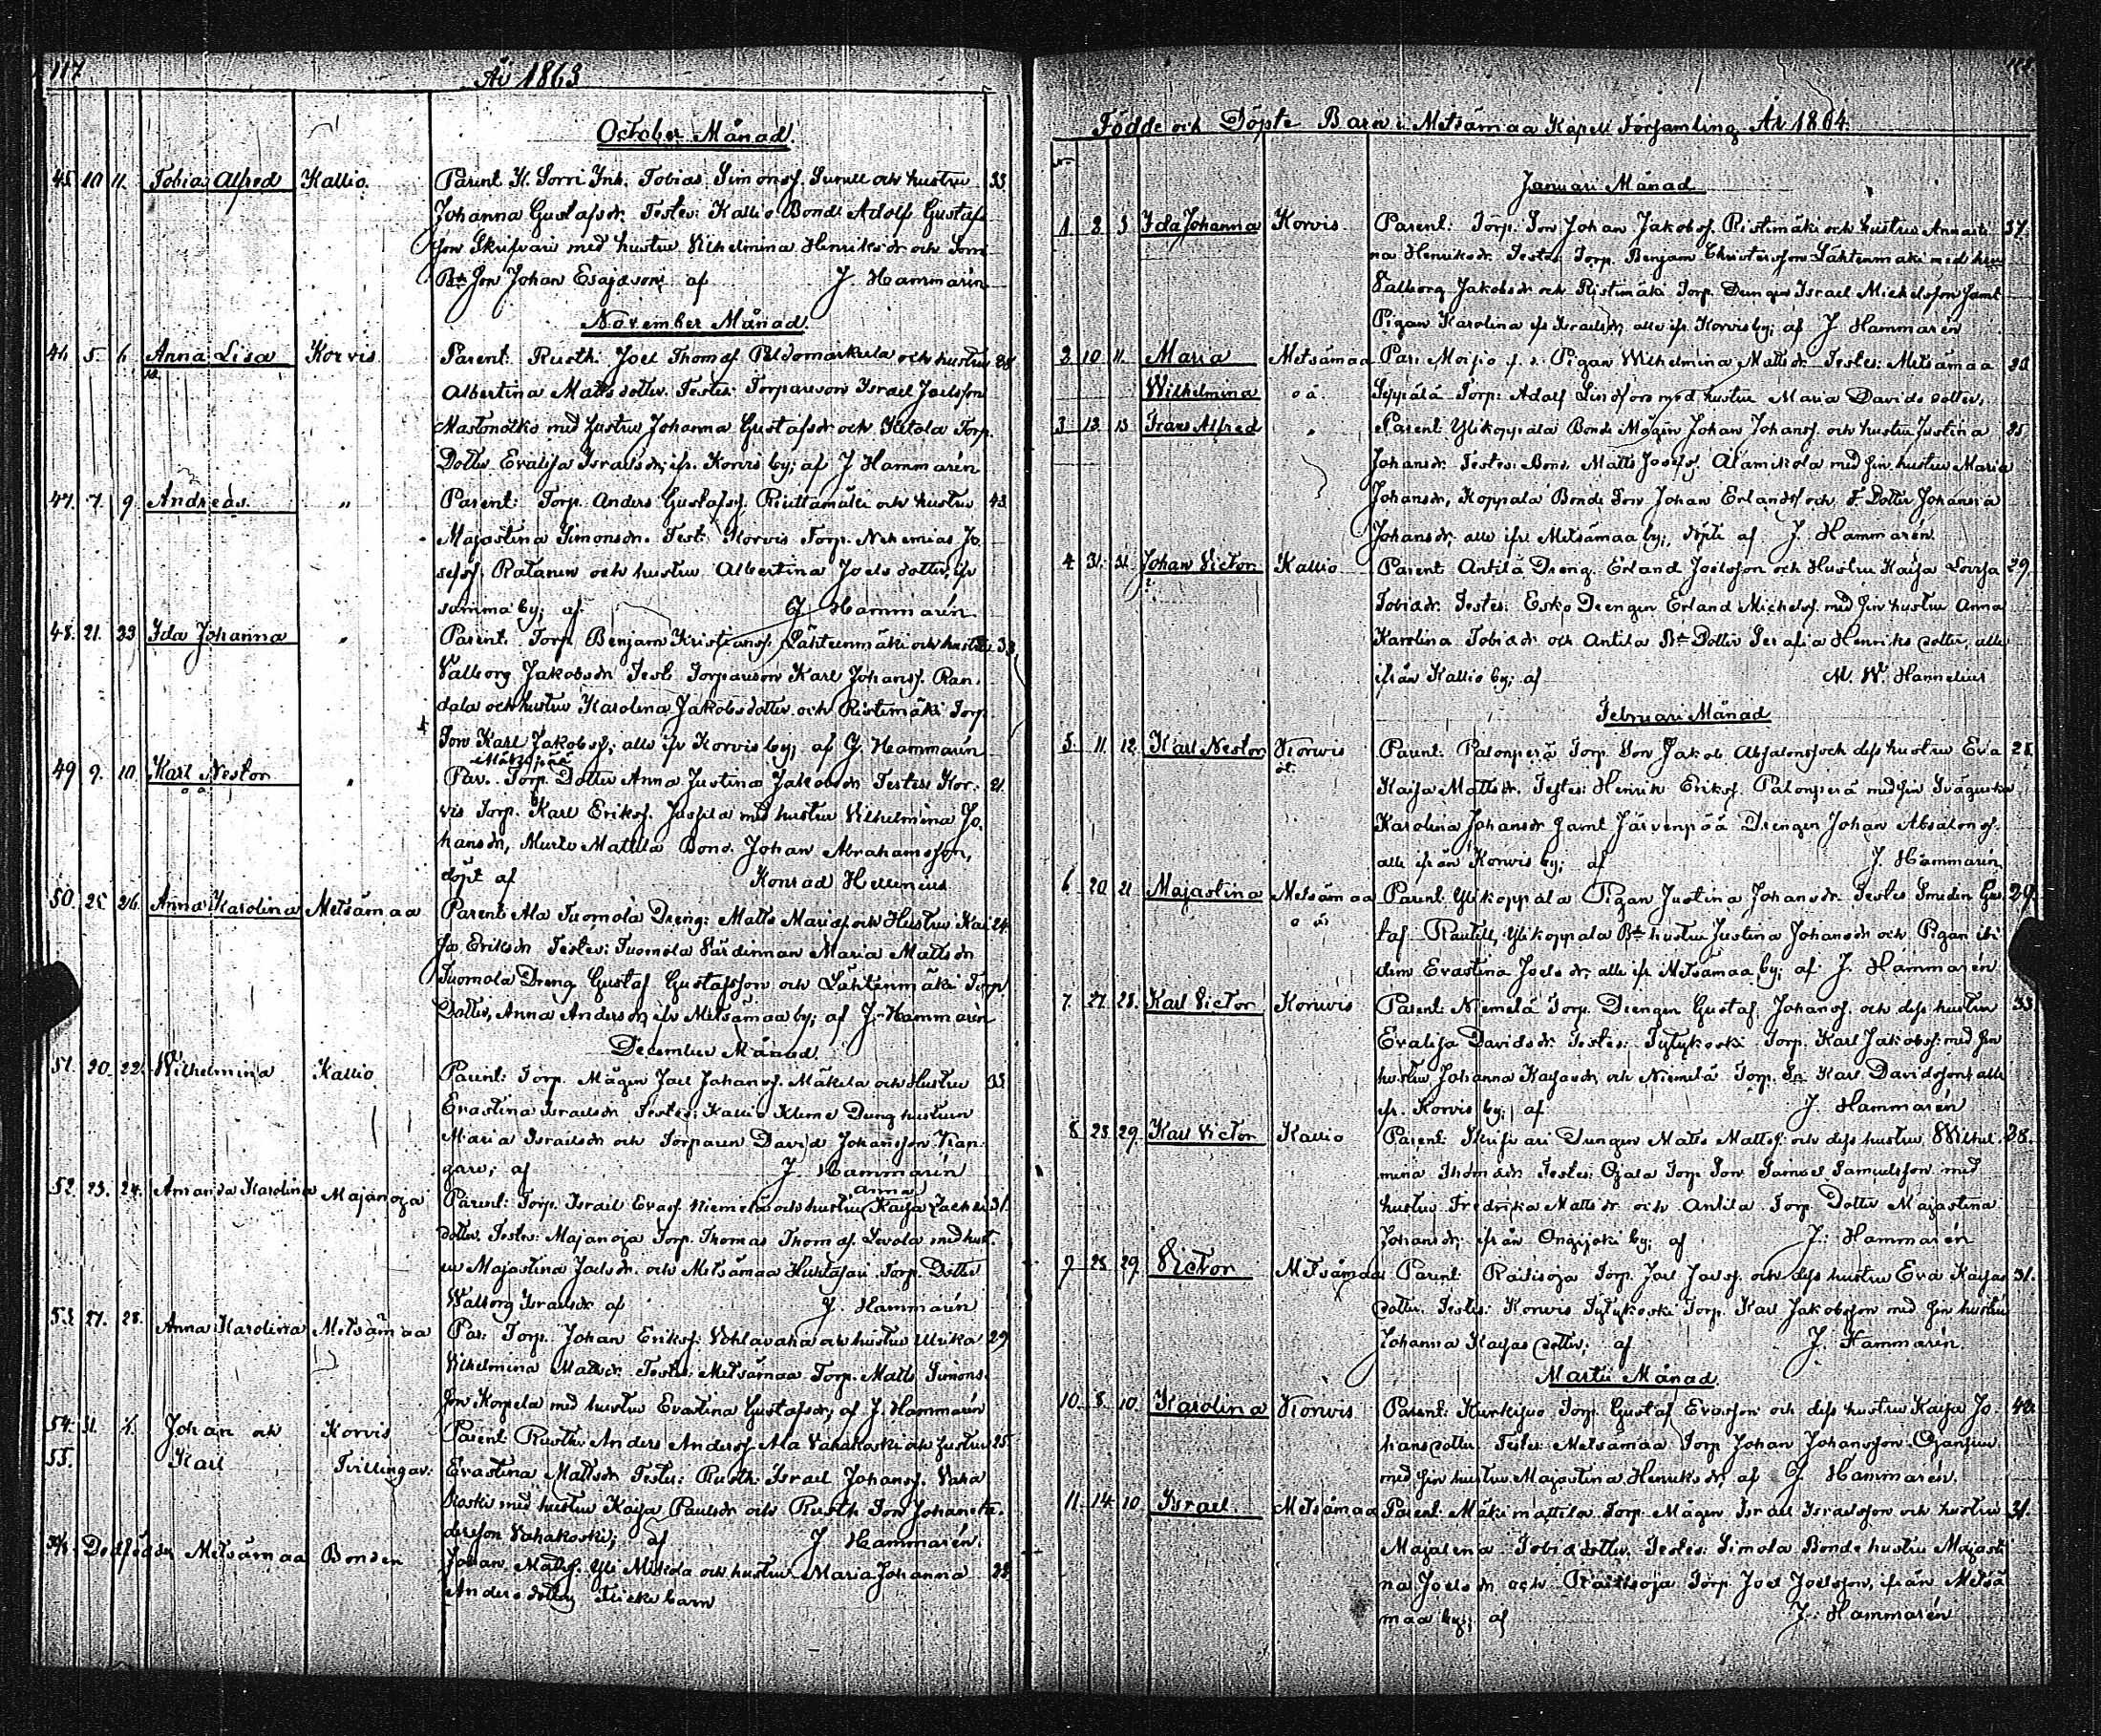 117
År 1863
October Månad
45. 10 11. Tobias Alfred Kallio. Parent K. Sorri Inh. Tobias Simonss. Surell och hustru 33
Johanna Gustafsdr. Testes: Kallio Bonde Adolf Gustafs
son Skrifvari med hustru Vilhelmina Henriksdr och Sorri
Bde Son Johan Esajasson; af J Hammarén
November Månad.
46. 5. 6. Anna Lisa Korvis Parent: Rusth. Joel Thomass. Peldomarkula och hustru 28
Albertina Matts dotter. Testes: Torpareson Israel Joelsson
Mastonotko med hustru Johanna Gustafsdr och Torp.
Dotter Evalisa Israelsdr, ifr. Korvis by; af J Hammarén
47. 7. 9. Andreas " Parent: Torp. Anders Gustafss. Riuttamäki och hustru 43
Majastina Simonsdr. Test: Korvis Torp. Nehemias Jo
sefss. Ratanen och hustru Albertina Joels dotter, ifr
samma by; af J Hammarén
48. 21. 23 Ida Johanna " Parent: Torp Benjam Kristianss. Lähteenmäki och hustru 33
Valborg Jakobsdr Test. Torpareson Karl Johanss. Ran.
dala och hustru Karolina Jakobsdotter och Ristimäki Torp.
Son Karl Jakobss; alle ifr Korvis by; af J. Hammarén
49 9. 10. Karl Nestor " Par. Torp. Dotter Anna Justina Jakobsdr Testes Kor. 21.
oä
vis Torp. Karl Erikss. Jussila med hustru Vilhelmina Jo.
hansdr, Murto Mattila Bond. Johan Abrahamsson,
döpt af Konrad Hellenius
50. 25. 26. Anna Karolina Metsämaa Parent: Ala Tuomola Dreng: Matts Mariass. och Hustru Kai 24
sa Eriksdr Testes: Tuomola Värdinnan Maria Mattsdr
Tuomola Dreng Gustaf Gustafsson och Lähtenmäki Torp
Dotter, Anna Andersdr, ifr Metsämaa by; af J. Hammarén
December Månad
51. 20. 22. Wilhelmina Kallio Parent: Torp. Mågen Joel Johanss. Mäkila och Hustru 33.
Evastina Israelsdr Testes: Kallio Klime Dreng hustrun
Maria Israelsdr och Torparen David Johansson
J Hammarén
52. 23. 24. Amanda Karolina Majanoja Parent: Torp. Israel Evass. Niemelä och hustru Anna Kaisa Zachri 31.
dotter. Testes: Majanoja Torp. Thomas Thomass. Levola med hust.
ru Majastina Joelsdr. och Metsämaa Huhtasari Torp. Dotter
Walborg Israelsdr af J. Hammarén
53. 27. 28. Anna Karolina Metsämaa Par: Torp. Johan Erikss: Vohlavaha och hustru Ulrika 29
Vilhelmina Mattsdr. Testes: Metsämaa Torp. Matts Simons
son Korpela med hustru Evastina Gustafsdr; af J. Hammarén
54. 31. 1. Johan och Korvis Parent Rusth Anders Anderss. Ala Vahakoski och hustru 25.
55. Karl Tvillingar. Evastina Mattsdr Testes: Rusth Israel Johanss. Vaha
koski med hustru Kaisa Paulsdr och Rusth Son Johan An.
dersson Vahakoski; af J Hammarén.
56. Dödfödde Metsämaa Bonden Johan Mattss. Yli Mikola och hustru Maria Johanna 28
Anders dotters Flicke barn
Födde och Döpte Barn i Metsämaa Kapell Församling År 1864.
Januari Månad
1. 2. 3 Ida Johanna Korvis Parent: Torp. Son Johan Jakobss. Ristimäki och hustru Annasti 37.
na Henriksdr. Testes Torp. Benjam Christersson Lähtenmäki med hru
Valborg Jakobsdr och Ristimäki Torp. Drengen Israel Michelsson samt
Pigan Karolina ifr Israelsdr, alle ifr. Korvis by; af J Hammarén
2. 10 11. Maria Metsämaa Par. Moisio Pigan Wilhelmina Mattsdr. Testes: Metsämaa 20
Wilhelmina oä. Seppälä Torp: Adolf Lindfors med hustru Maria Davids dotter,
3 13. 15 Frans Alfred " Parent: Ylikoppala Bonde Mågen Johan Johanss. och hustru Justina 25
Johansdr. Testes: Bond. Matts Josefss. Alamikola med sin hustru Maria
Johansdr, Koppala Bonde Son Johan Erlandss och F. Dotter Johanna
Johansdr, alle ifr Metsämaa by; döpte af J. Hammarén
4 31. 31. Johan Victor Kallio Parent: Antila Dreng. Erland Joelsson och Hustru Kaisa Lovisa 29.
Tobiædr. Testes: Esko Drengen Erland Michelss. med sin hustru Anna
Karolina Tobiædr och Antila Bde Dotter Serafia Henriks dotter, alle
ifrån Kallio by; af M. W. Hannelius
Februari Månad
5. 11. 12. Karl Nestor Korwis Parent: Palonperä Torp. Son Jakob Absalonss och dess hustru Eva 28.
Kaisa Mattsdr. Testes: Henrik Erikss. Palonperä med sin Svägerska
Karolina Johansdr samt Järvenpää Drengen Johan Absalonss.
alle ifrån Korvis by; af J. Hammarén
6. 20 21 Majastina Metsämaa Parent: Ylikoppala Pigan Justina Johansdr. Testes Smeden Gus 29.
oä. taf Rautell, Ylikoppala Bde hustru Justina Johansdr och Pigan ibi
dem Evastina Joelsdr; alle ifr Metsämaa by; af J. Hammarén
7. 27. 28. Karl Victor Korwis Parent: Niemelä Torp. Drengen Gustaf Johanss. och dess hustru 33.
Evalisa Davidsdr. Testes: Tytykoski Torp. Karl Jakobss: med sin
hustru Johanna Kaisasdr, och Niemelä Torp. Sn Karl Davidsson alle
ifr. Korvis by; af J. Hammarén
8. 28 29. Karl Victor Kallio Parent: Skrifvari Drengen Matts Mattss: och dess hustru Wilhel. 28.
mina Thomædr Testes: Ojala Torp Son Samuel Samuelsson med
hustru Fredrika Mattsdr och Antila Torp. Dotter Majastina
Johansdr; ifrån Onzijoki by; af J. Hammarén
9. 28. 29. Victor Metsämaa Parent: Raitisoja Torp. Joel Joelss. och dess hustru Eva Kaisas 31.
dotter. Testes: Korwis Tytykoski Torp. Karl Jakobsson med sin hustru
Johanna Kaisas dotter; af J. Hammarén.
Martii Månad
10. 8. 10. Karolina Korwis Parent: Kurkisuo Torp. Gustaf Evasson och dess hustru Kaisa Jo. 42.
hansdotter Testes: Metsämaa Torp Johan Johansson Ojansuu
med sin hustru Majastina Henriksdr; af J. Hammarén.
11. 14. 10. Israel Metsämaa Parent: Mäkimattila Torp: Mågen Israel Israelsson och hustru 31.
Majalena Tobiædotter. Testes: Simola Bonde hustru Majasti
na Joelsdr och Raitisoja Torp. Joel Joelsson, ifrån Metsä
maa by; af J. Hammarén